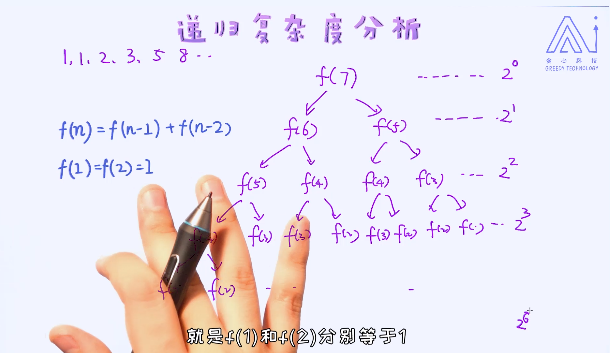 递归复杂度分析
贪心科技
GREEDY TECHNOLOGY
1, 1, 2, 3, 5 8 ...
f(7) ------ 2^0
f(n) = f(n-1) + f(n-2)
f(6) f(5) ------ 2^1
f(1) = f(2) = 1
f(5) f(4) f(4) f(3) --- 2^2
f(3) f(3) f(2) f(3) f(2) f(2) f(1) --- 2^3
f(2)
2^6
就是f(1)和f(2)分别等于1